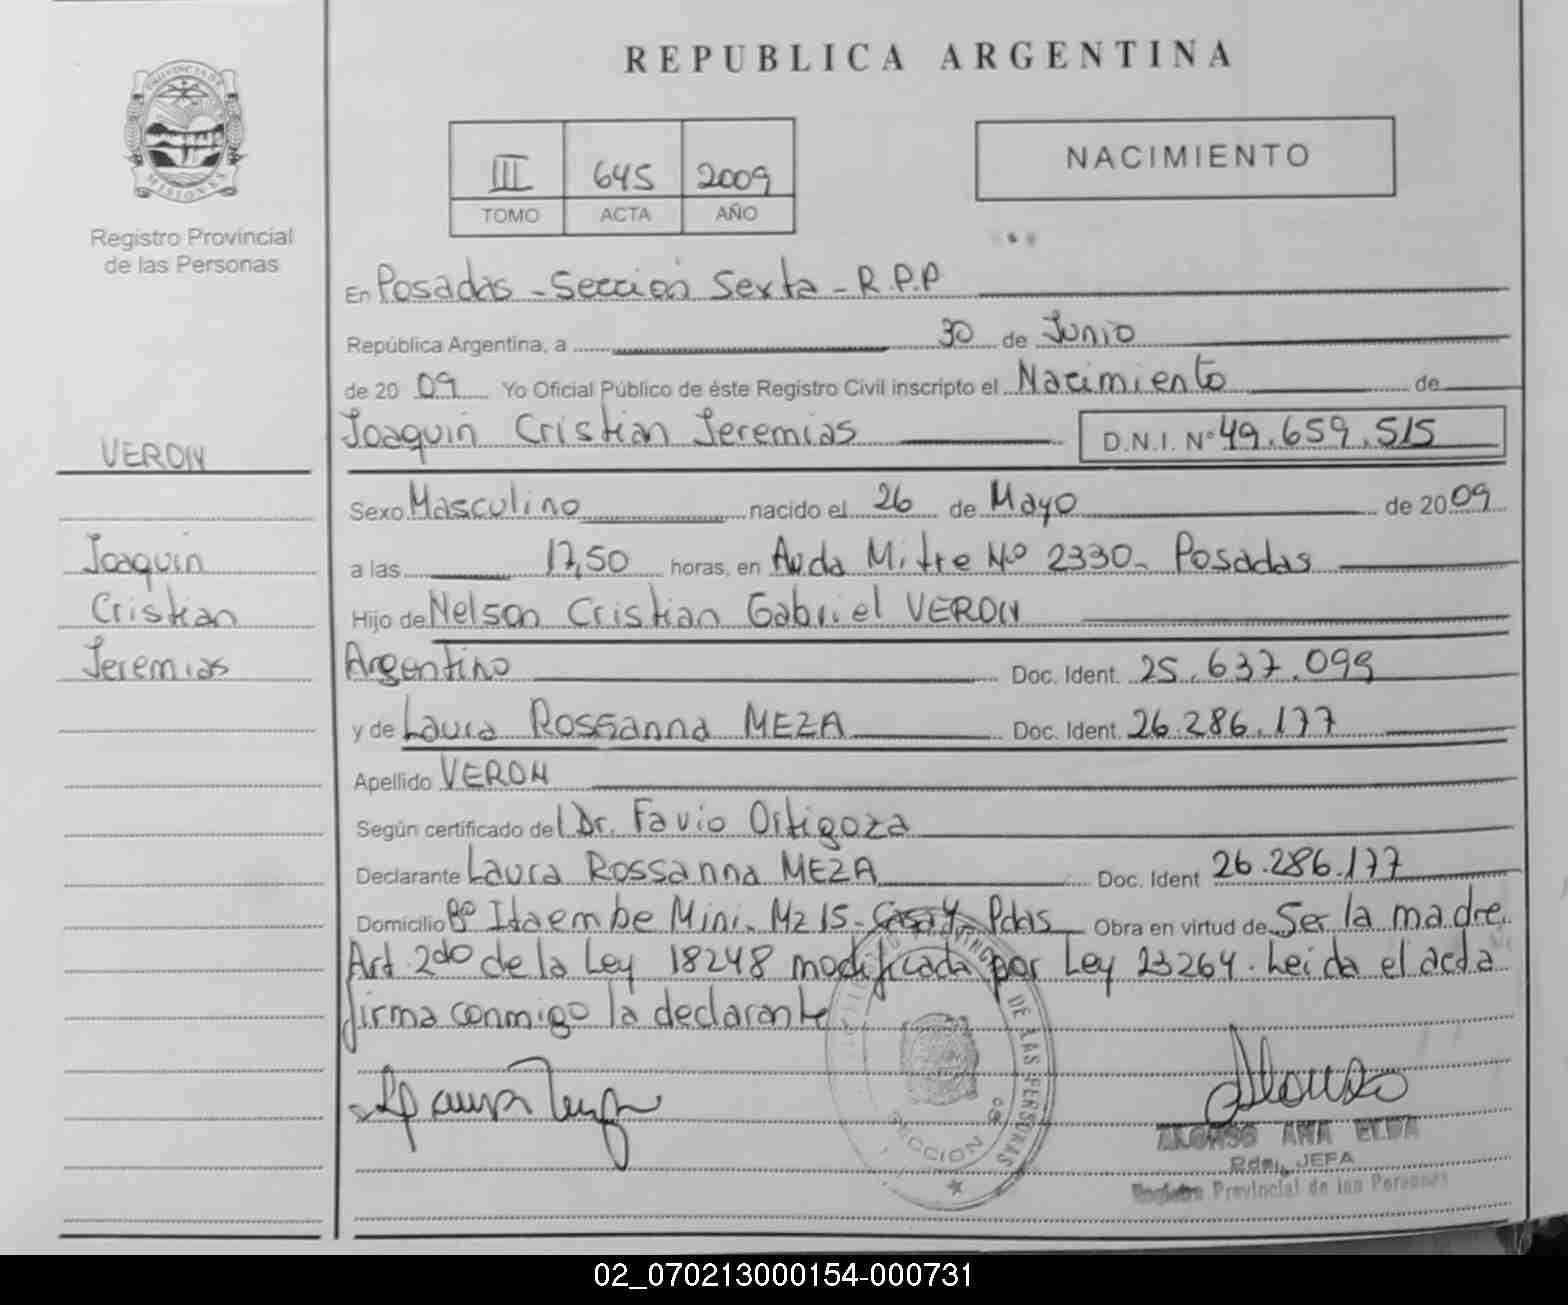 REPUBLICA ARGENTINA
PROVINCIA DE MISIONES
Registro Provincial
de las Personas
III 645 2009
TOMO ACTA AÑO
NACIMIENTO
En Posadas - Sección Sexta - R.P.P
República Argentina, a 30 de Junio
de 2009 Yo Oficial Público de éste Registro Civil inscripto el Nacimiento de
Joaquin Cristian Jeremias D.N.I. Nº 49.659.515
VERON
Sexo Masculino nacido el 26 de Mayo de 2009
Joaquin
a las 17,50 horas, en Avda Mitre Nº 2330- Posadas
Cristian
Hijo de Nelson Cristian Gabriel VERON
Jeremias
Argentino Doc. Ident. 25.637.099
y de Laura Rossanna MEZA Doc. Ident. 26.286.177
Apellido VERON
Según certificado del Dr. Favio Ortigoza
Declarante Laura Rossanna MEZA Doc. Ident 26.286.177
Domicilio Bº Itaembe Mini. Mz 15- Casa 4 Pdas Obra en virtud de Ser la madre.
Art 2do de la Ley 18248 modificada por Ley 23264. Leida el acta
firma conmigo la declarante
DE LAS PERSONAS
SECCION
ALONSO ANA ELDA
JEFA
Registro Provincial de las Personas
02_070213000154-000731